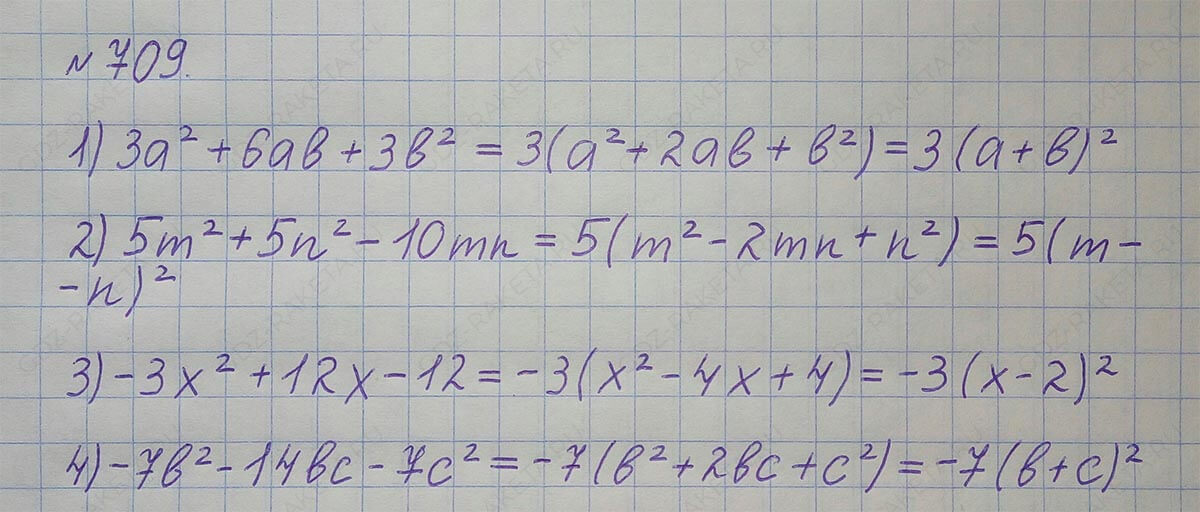 № 709.
1) 3a² + 6ab + 3b² = 3(a² + 2ab + b²) = 3(a + b)²
2) 5m² + 5n² - 10mn = 5(m² - 2mn + n²) = 5(m -
- n)²
3) -3x² + 12x - 12 = -3(x² - 4x + 4) = -3(x - 2)²
4) -7b² - 14bc - 7c² = -7(b² + 2bc + c²) = -7(b + c)²
GDZ-RAKETA.RU